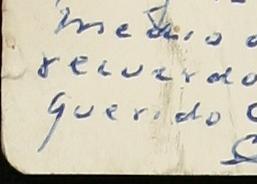 Medio
recuerdo
querido